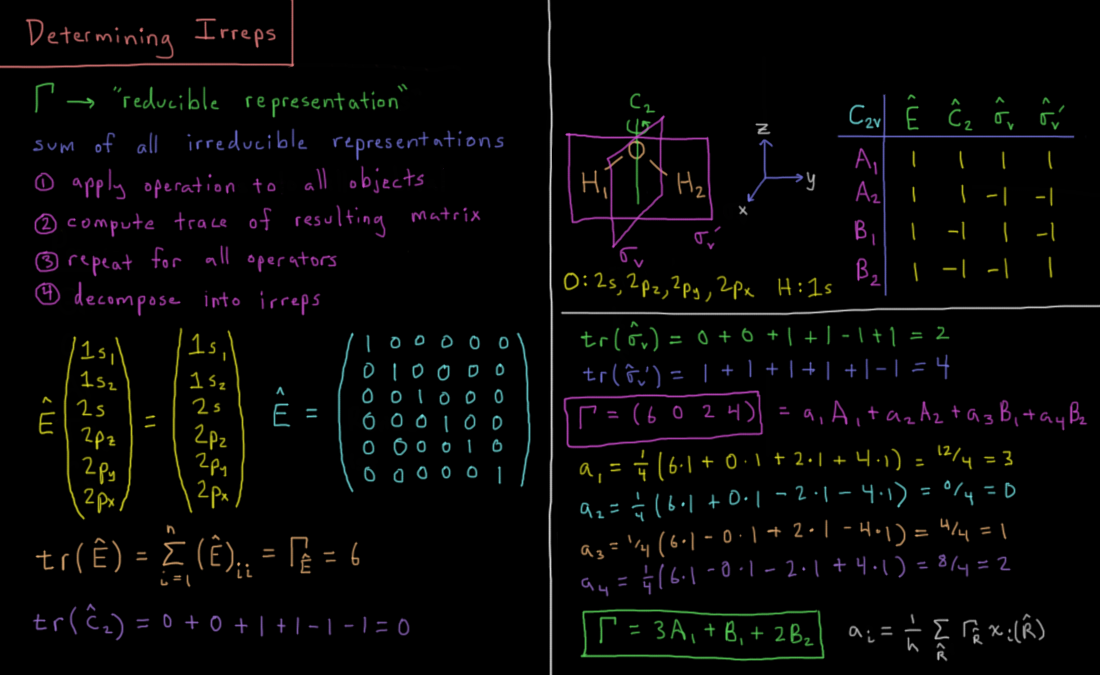 Determining Irreps
Γ → "reducible representation"
sum of all irreducible representations
① apply operation to all objects
② compute trace of resulting matrix
③ repeat for all operators
④ decompose into irreps
Ê (1s₁ 1s₂ 2s 2p_z 2p_y 2p_x) = (1s₁ 1s₂ 2s 2p_z 2p_y 2p_x)
Ê =
1 0 0 0 0 0
0 1 0 0 0 0
0 0 1 0 0 0
0 0 0 1 0 0
0 0 0 0 1 0
0 0 0 0 0 1
tr(Ê) = Σ_{i=1}^{n} (Ê)_{ii} = Γ_Ê = 6
tr(Ĉ₂) = 0 + 0 + 1 + 1 - 1 - 1 = 0
C₂
H₁ H₂
σᵥ'
σᵥ
z
y
x
O: 2s, 2p_z, 2p_y, 2p_x H: 1s
C₂ᵥ Ê Ĉ₂ σ̂ᵥ σ̂ᵥ'
A₁ 1 1 1 1
A₂ 1 1 -1 -1
B₁ 1 -1 1 -1
B₂ 1 -1 -1 1
tr(σ̂ᵥ) = 0 + 0 + 1 + 1 - 1 + 1 = 2
tr(σ̂ᵥ') = 1 + 1 + 1 + 1 + 1 - 1 = 4
Γ = (6 0 2 4) = a₁A₁ + a₂A₂ + a₃B₁ + a₄B₂
a₁ = 1/4 (6·1 + 0·1 + 2·1 + 4·1) = 12/4 = 3
a₂ = 1/4 (6·1 + 0·1 - 2·1 - 4·1) = 0/4 = 0
a₃ = 1/4 (6·1 - 0·1 + 2·1 - 4·1) = 4/4 = 1
a₄ = 1/4 (6·1 - 0·1 - 2·1 + 4·1) = 8/4 = 2
Γ = 3A₁ + B₁ + 2B₂
aᵢ = 1/h Σ_R̂ Γ_R̂ xᵢ(R̂)